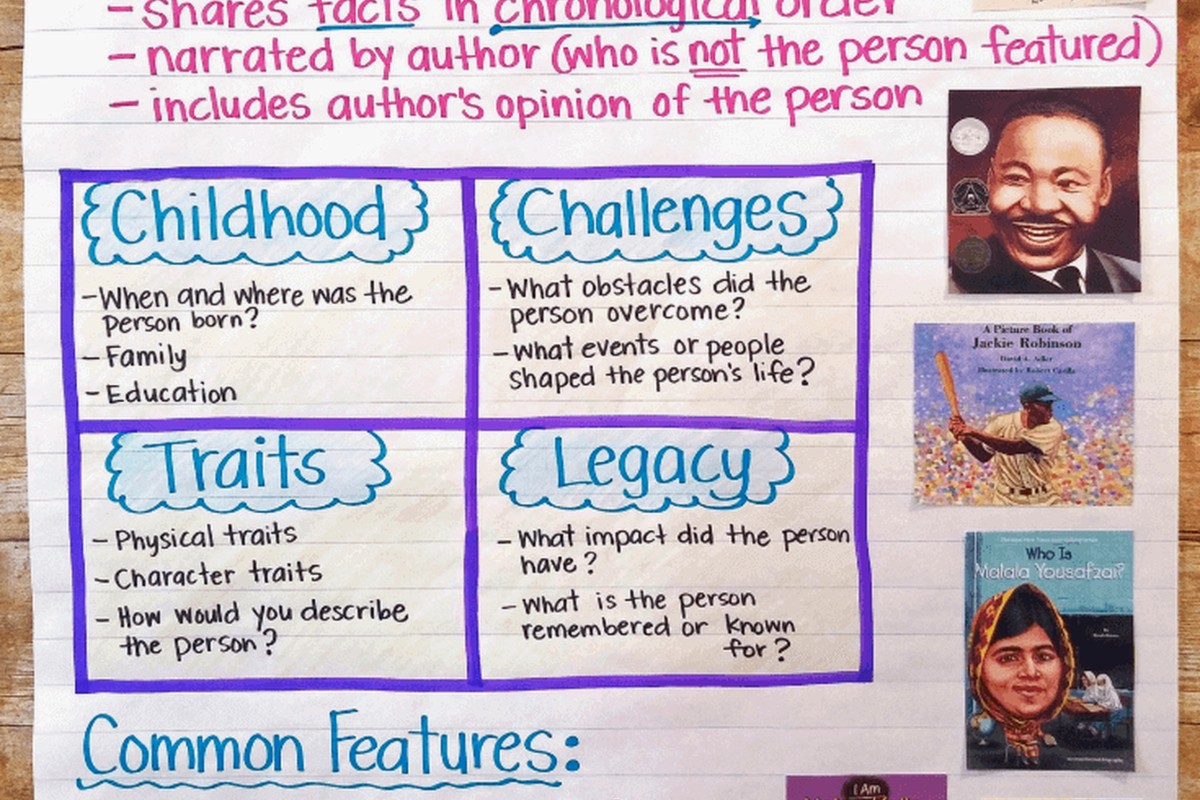 - shares facts in chronological order
- narrated by author (who is not the person featured)
- includes author's opinion of the person
Childhood
- When and where was the
person born?
- Family
- Education
Challenges
- What obstacles did the
person overcome?
- What events or people
shaped the person's life?
Traits
- Physical traits
- Character traits
- How would you describe
the person?
Legacy
- What impact did the person
have?
- What is the person
remembered or known
for?
Common Features:
A Picture Book of
Jackie Robinson
David A. Adler
Illustrated by Robert Casilla
Who Is
Malala Yousafzai?
I Am